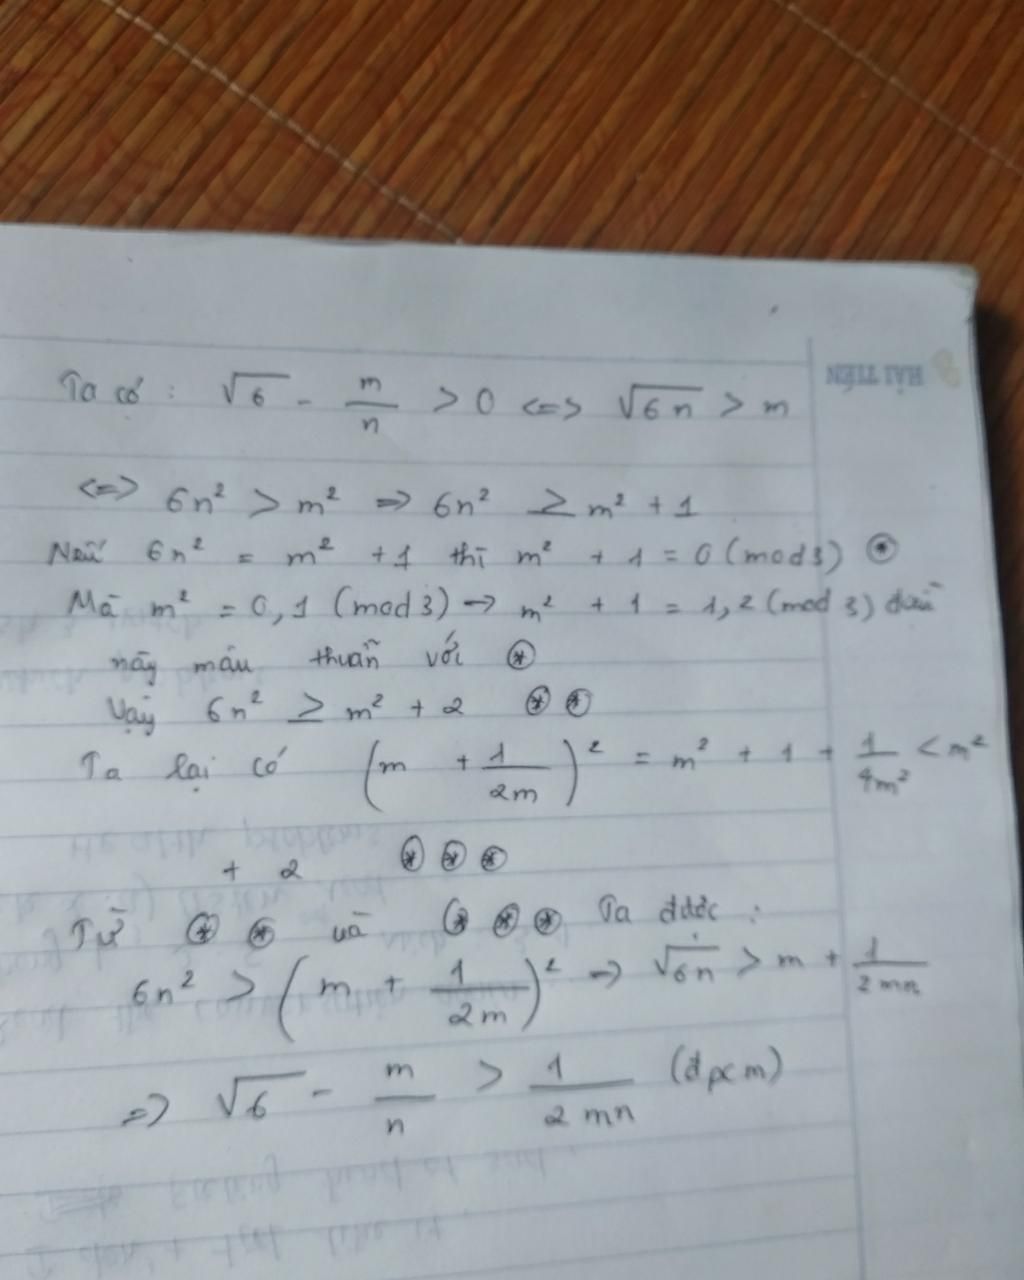 Ta có : √6 - m/n > 0 <=> √6n > m
HẢI TIẾN
<=> 6n² > m² => 6n² ≥ m² + 1
Nếu 6n² = m² + 1 thì m² + 1 = 0 (mod 3) ⊛
Mà m² = 0, 1 (mod 3) → m² + 1 = 1, 2 (mod 3) điều
này mâu thuẫn với ⊛
Vậy 6n² ≥ m² + 2 ⊛ ⊛
Ta lại có (m + 1/2m)² = m² + 1 + 1/4m² < m²
+ 2 ⊛ ⊛ ⊛
Từ ⊛ ⊛ và ⊛ ⊛ ⊛ Ta được :
6n² > (m + 1/2m)² => √6n > m + 1/2mn
=> √6 - m/n > 1/2mn (đpcm)